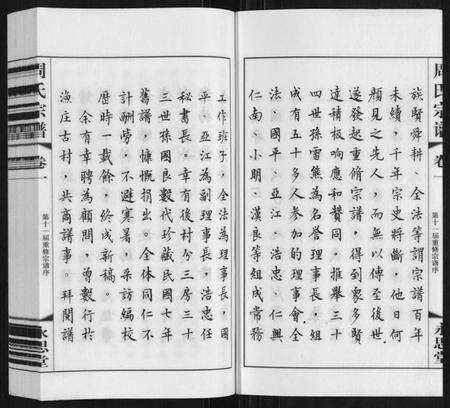 周氏宗譜
卷一
第十一届重修宗譜序
族賢舜耕、全法等謂宗譜百年
未續，千年宗史將斷，他日何
顏見之先人，而無以傳至後世
遂發起重修宗譜，得到衆多賢
達積极响應和贊同，推舉三十
四世孫雪熊為名誉理事長，組
成有五十多人參加的理事會全
法、國平、亞江、浩忠、仁興
仁南、小明、漢良等組成常務
工作班子，全法為理事長，國
平、亞江為副理事長，浩忠任
秘書長。幸有後村分三房三十
三世孫國良數代珍藏民國七年
舊譜，慷慨捐出。全体同仁不
計酬勞，不避寒暑，采訪編校
歷時一載餘，終成新稿。
余有幸聘為顧問，曾數行於
海庄古村，共商譜事。拜閱譜
周氏宗譜
卷一
第十一届重修宗譜序
永思堂
永思堂